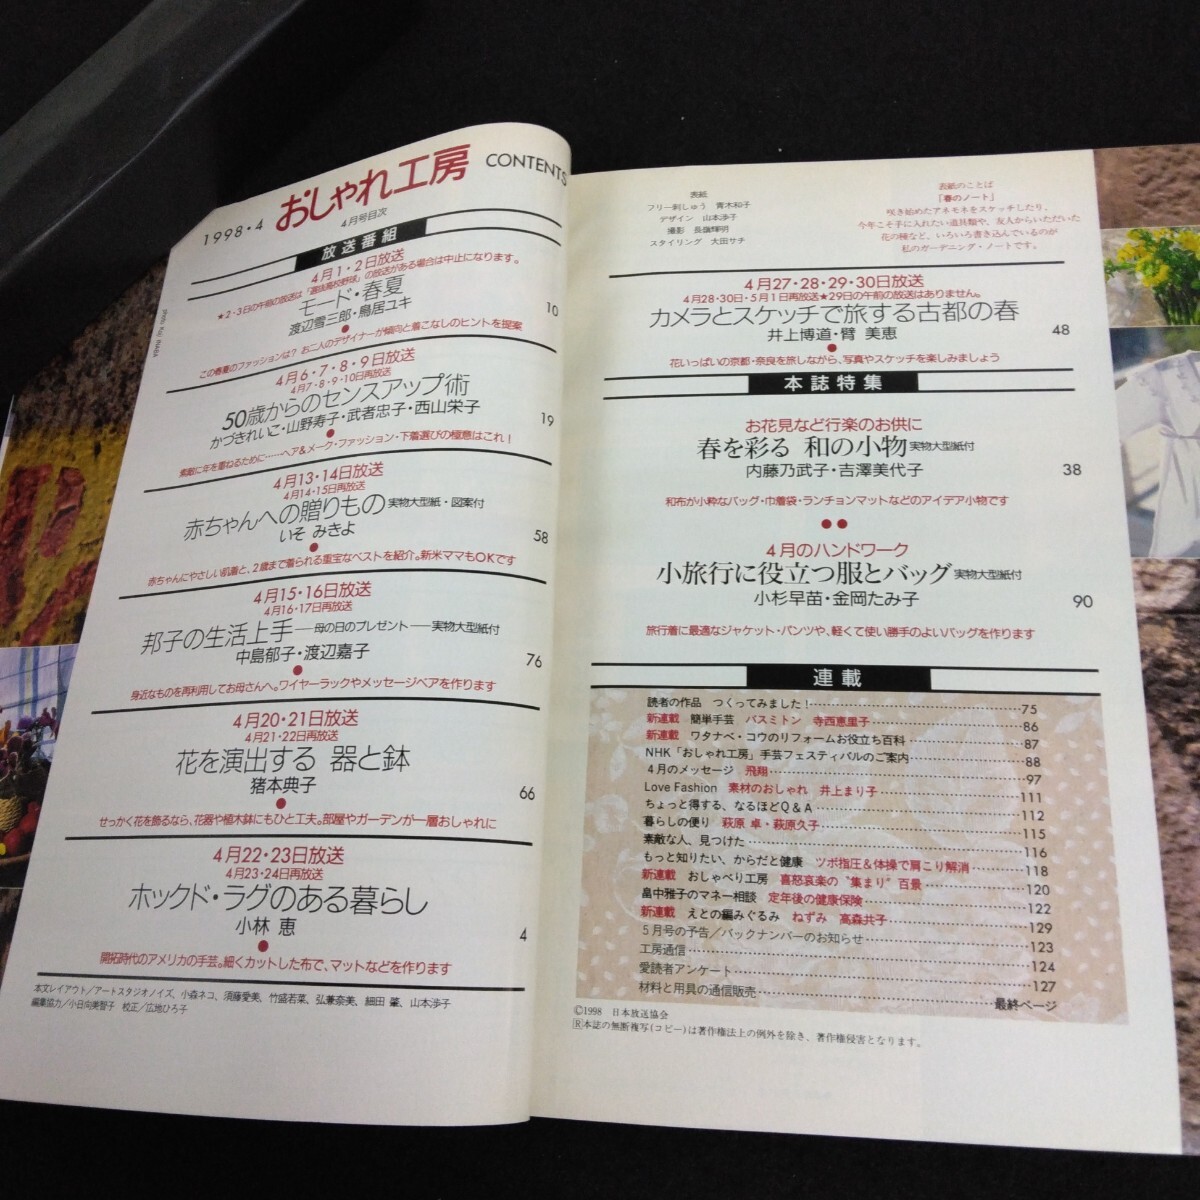 1998・4
おしゃれ工房
CONTENTS
4月号目次
放送番組
4月1・2日放送
★2・3日の午前の放送は「選抜高校野球」の放送がある場合は中止になります。
モード・春夏
渡辺雪三郎・鳥居ユキ
10
この春夏のファッションは? お二人のデザイナーが傾向と着こなしのヒントを提案
4月6・7・8・9日放送
4月7・8・9・10日再放送
50歳からのセンスアップ術
かづきれいこ・山野寿子・武者忠子・西山栄子
19
素敵に年を重ねるために……ヘア&メーク・ファッション・下着選びの極意はこれ!
4月13・14日放送
4月14・15日再放送
赤ちゃんへの贈りもの 実物大型紙・図案付
いそ みきよ
58
赤ちゃんにやさしい肌着と、2歳まで着られる重宝なベストを紹介。新米ママもOKです
4月15・16日放送
4月16・17日再放送
邦子の生活上手 ―母の日のプレゼント― 実物大型紙付
中島郁子・渡辺嘉子
76
身近なものを再利用してお母さんへ。ワイヤーラックやメッセージベアを作ります
4月20・21日放送
4月21・22日再放送
花を演出する 器と鉢
猪本典子
66
せっかく花を飾るなら、花器や植木鉢にもひと工夫。部屋やガーデンが一層おしゃれに
4月22・23日放送
4月23・24日再放送
ホックド・ラグのある暮らし
小林 恵
4
開拓時代のアメリカの手芸。細くカットした布で、マットなどを作ります
本文レイアウト/アートスタジオノイズ、小森ネコ、須藤愛美、竹盛若菜、弘兼奈美、細田 肇、山本渉子
編集協力/小日向美智子 校正/広地ひろ子
表紙
フリー刺しゅう 青木和子
デザイン 山本渉子
撮影 長嶺輝明
スタイリング 大田サチ
表紙のことば
「春のノート」
咲き始めたアネモネをスケッチしたり、
今年こそ手に入れたい道具類や、友人からいただいた
花の種など、いろいろ書き込んでいるのが
私のガーデニング・ノートです。
4月27・28・29・30日放送
4月28・30日・5月1日再放送★29日の午前の放送はありません。
カメラとスケッチで旅する古都の春
井上博道・臂 美恵
48
花いっぱいの京都・奈良を旅しながら、写真やスケッチを楽しみましょう
本誌特集
お花見など行楽のお供に
春を彩る 和の小物 実物大型紙付
内藤乃武子・吉澤美代子
38
和布が小粋なバッグ・巾着袋・ランチョンマットなどのアイデア小物です
4月のハンドワーク
小旅行に役立つ服とバッグ 実物大型紙付
小杉早苗・金岡たみ子
90
旅行着に最適なジャケット・パンツや、軽くて使い勝手のよいバッグを作ります
連載
読者の作品 つくってみました!……75
新連載 簡単手芸 バスミトン 寺西恵里子……86
新連載 ワタナベ・コウのリフォームお役立ち百科……87
NHK「おしゃれ工房」手芸フェスティバルのご案内……88
4月のメッセージ 飛翔……97
Love Fashion 素材のおしゃれ 井上まり子……111
ちょっと得する、なるほどQ&A……112
暮らしの便り 萩原 卓・萩原久子……115
素敵な人、見つけた……116
もっと知りたい、からだと健康 ツボ指圧&体操で肩こり解消……118
新連載 おしゃべり工房 喜怒哀楽の"集まり"百景……120
畠中雅子のマネー相談 定年後の健康保険……122
新連載 えとの編みぐるみ ねずみ 高森共子……129
5月号の予告/バックナンバーのお知らせ……123
工房通信……124
愛読者アンケート……127
材料と用具の通信販売……最終ページ
©1998 日本放送協会
Ⓡ本誌の無断複写(コピー)は著作権法上の例外を除き、著作権侵害となります。